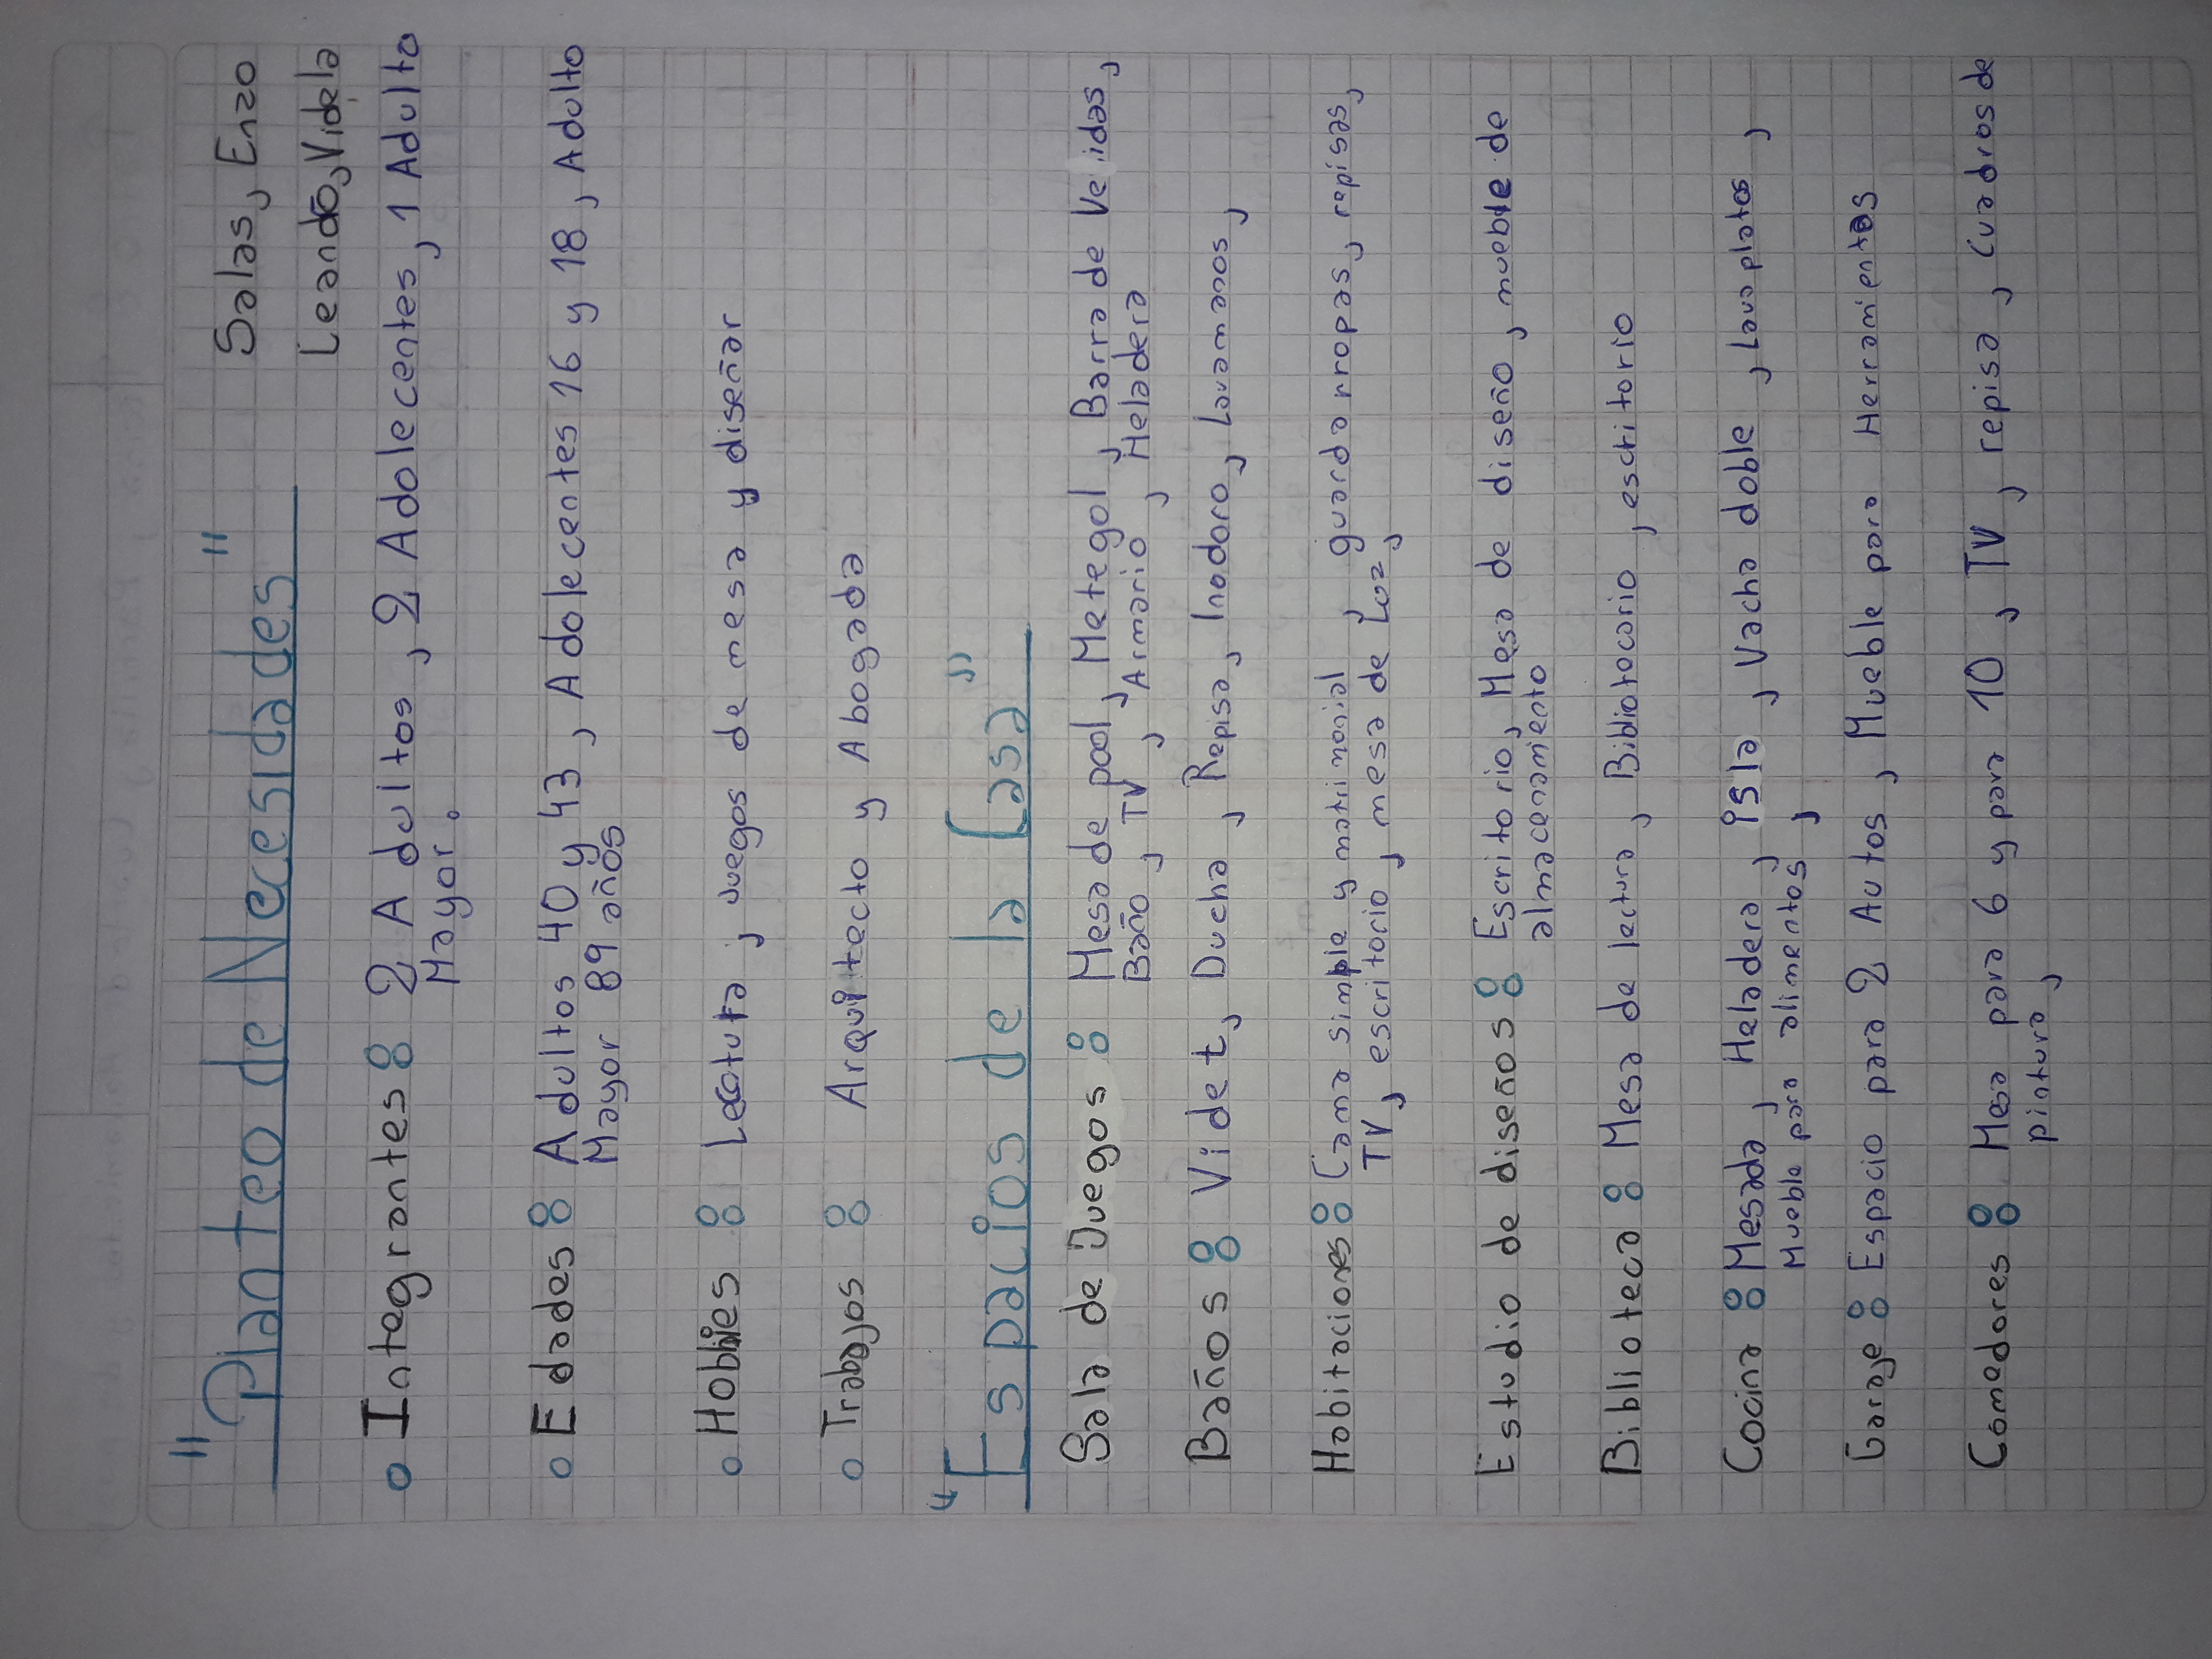 "Planteo de Necesidades"
Salas, Enzo
Leandro, Videla
o Integrantes: 2 Adultos, 2 Adolecentes, 1 Adulto
Mayor.
o Edades: Adultos 40 y 43, Adolecentes 16 y 18, Adulto
Mayor 89 años
o Hobbies: Lectura, Juegos de mesa y diseñar
o Trabajos: Arquitecto y Abogada
"Espacios de la Casa"
Sala de Juegos: Mesa de pool, Metegol, Barra de Vevidas,
Baño, TV, Armario, Heladera
Baños: Videt, Ducha, Repisa, Inodoro, Lavamanos,
Habitaciones: Cama simple y matrimonial, guardarropas, repisas,
TV, escritorio, mesa de Luz,
Estudio de diseños: Escritorio, Mesa de diseño, mueble de
almacenamiento
Biblioteca: Mesa de lectura, Bibliotocario, escritorio
Cocina: Mesada, Heladera, Isla, Vacha doble, Lavaplatos,
Mueble para alimentos,
Garaje: Espacio para 2 Autos, Mueble para Herramientas
Comedores: Mesa para 6 y para 10, TV, repisa, cuadros de
pintura,